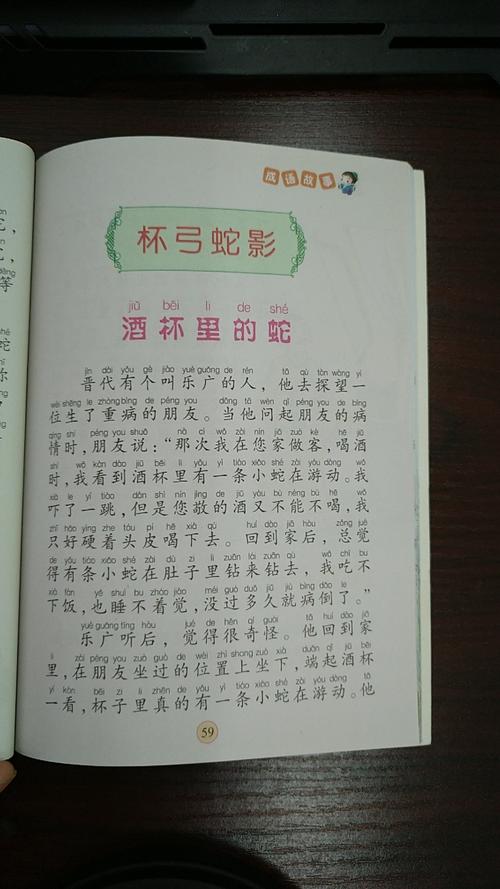 成语故事
杯弓蛇影
jiǔ bēi lǐ de shé
酒杯里的蛇
jìn dài yǒu gè jiào yuè guǎng de rén tā qù tàn wàng yí
晋代有个叫乐广的人，他去探望一
wèi shēng le zhòng bìng de péng you dāng tā wèn qǐ péng you de bìng
位生了重病的朋友。当他问起朋友的病
qíng shí péng you shuō nà cì wǒ zài nín jiā zuò kè hē jiǔ
情时，朋友说：“那次我在您家做客，喝酒
shí wǒ kàn dào jiǔ bēi li yǒu yì tiáo xiǎo shé zài yóu dòng wǒ
时，我看到酒杯里有一条小蛇在游动。我
xià le yí tiào dàn shì nín jìng de jiǔ yòu bù néng bù hē wǒ
吓了一跳，但是您敬的酒又不能不喝，我
zhǐ hǎo yìng zhe tóu pí hē xià qù huí dào jiā hòu zǒng jué
只好硬着头皮喝下去。回到家后，总觉
de yǒu tiáo xiǎo shé zài dù zi li zuān lái zuān qù wǒ chī bu
得有条小蛇在肚子里钻来钻去，我吃不
xià fàn yě shuì bu zháo jiào méi guò duō jiǔ jiù bìng dǎo le
下饭，也睡不着觉，没过多久就病倒了。”
yuè guǎng tīng hòu jué de hěn qí guài tā huí dào jiā
乐广听后，觉得很奇怪。他回到家
li zài péng you zuò guò de wèi zhì shang zuò xià duān qǐ jiǔ bēi
里，在朋友坐过的位置上坐下，端起酒杯
yí kàn bēi zi li zhēn de yǒu yì tiáo xiǎo shé zài yóu dòng tā
一看，杯子里真的有一条小蛇在游动。他
59